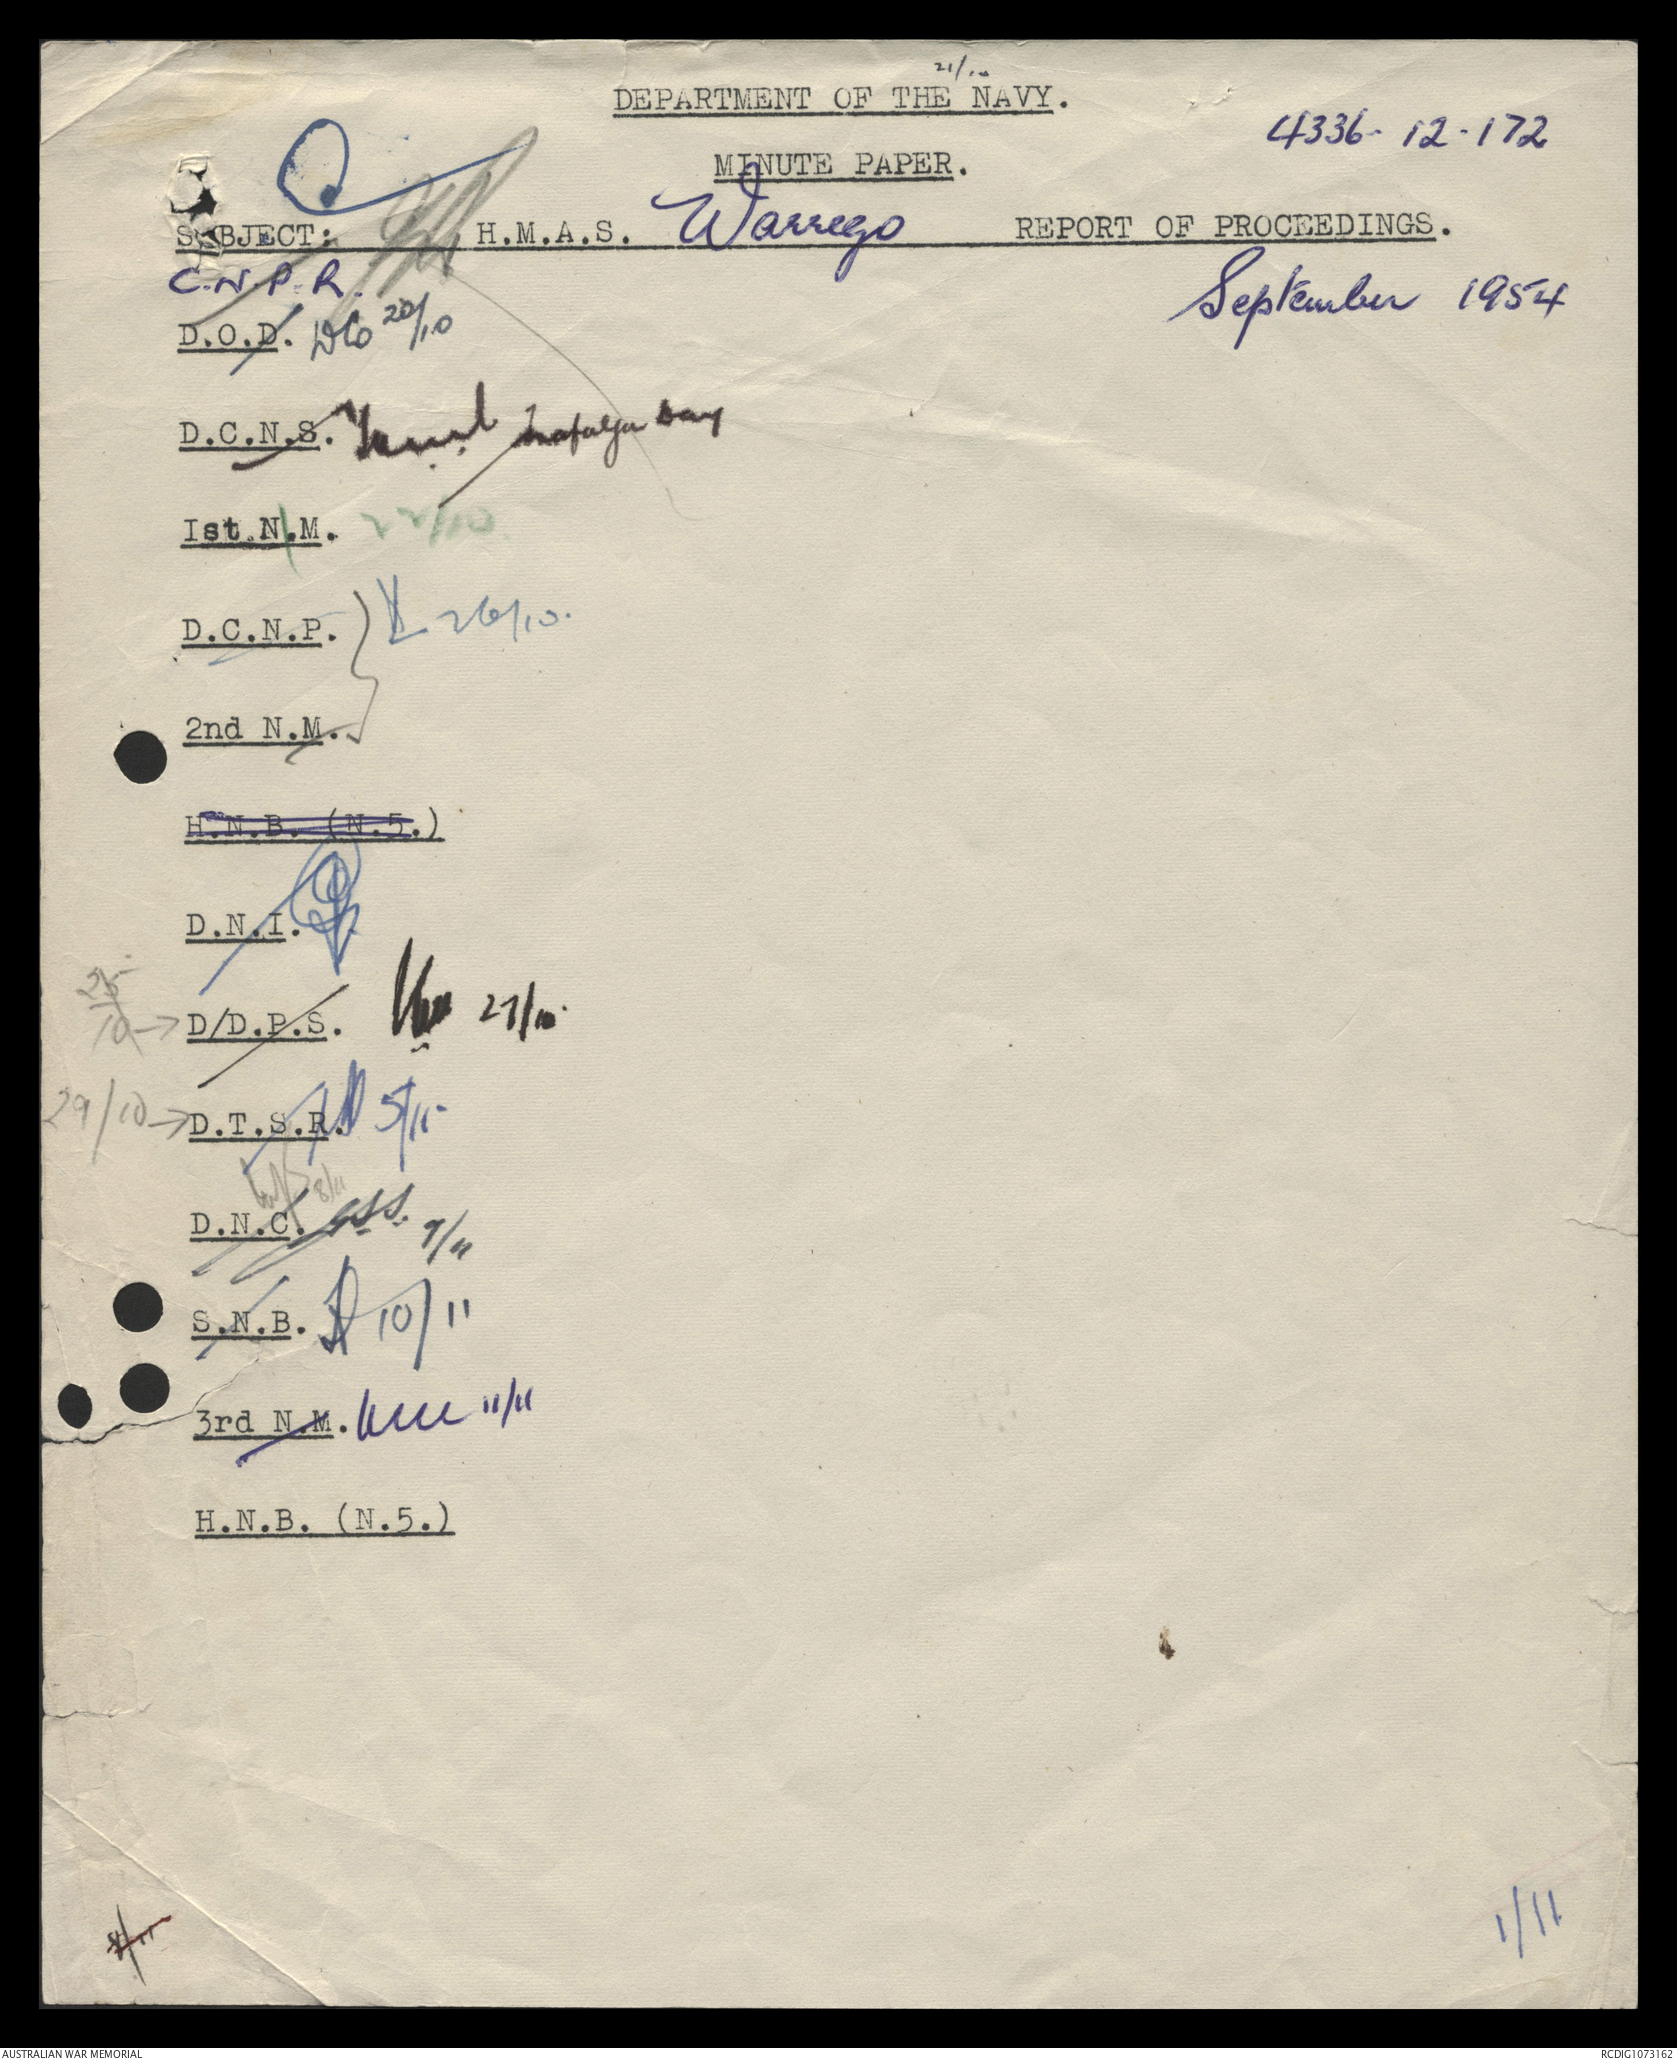 21/10
DEPARTMENT OF THE NAVY.
4336-12-172
MINUTE PAPER.
SUBJECT: H.M.A.S. Warrego REPORT OF PROCEEDINGS.
C.N.P.R.
September 1954
D.O.D. 20/10
D.C.N.S. Trafalgar Day
1st.N.M. 22/10
D.C.N.P. 26/10.
2nd N.M.
H.N.B. (N.5.)
D.N.I.
25/10 → D/D.P.S. 27/10.
29/10 → D.T.S.R. 5/11
8/11
D.N.C. 9/11
S.N.B. 10/11
3rd N.M. 11/11
H.N.B. (N.5.)
1/11
AUSTRALIAN WAR MEMORIAL
RCDIG1073162